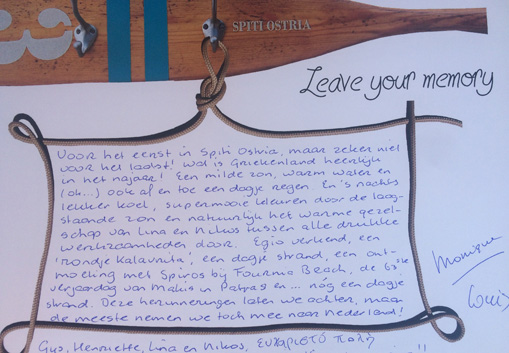 SPITI OSTRIA
Leave your memory
Voor het eerst in Spiti Ostria, maar zeker niet
voor het laatst! Wat is Griekenland heerlijk
in het najaar! Een milde zon, warm water en
(ok...) ook af en toe een dagje regen. En 's nachts
lekker koel, supermooie kleuren door de laag-
staande zon en natuurlijk het warme gezel-
schap van Lina en Nikos tussen alle drukke
werkzaamheden door. Egio verkend, een
'rondje Kalavrita', een dagje strand, een ont-
moeting met Spiros bij Fournia Beach, de 63ste
verjaardag van Makis in Patras en... nog een dagje
strand. Deze herinneringen laten we achten, maar
de meeste nemen we toch mee naar Nederland!
Monique
Gys, Henriette, Lina en Nikos, ευχαριστό πολή